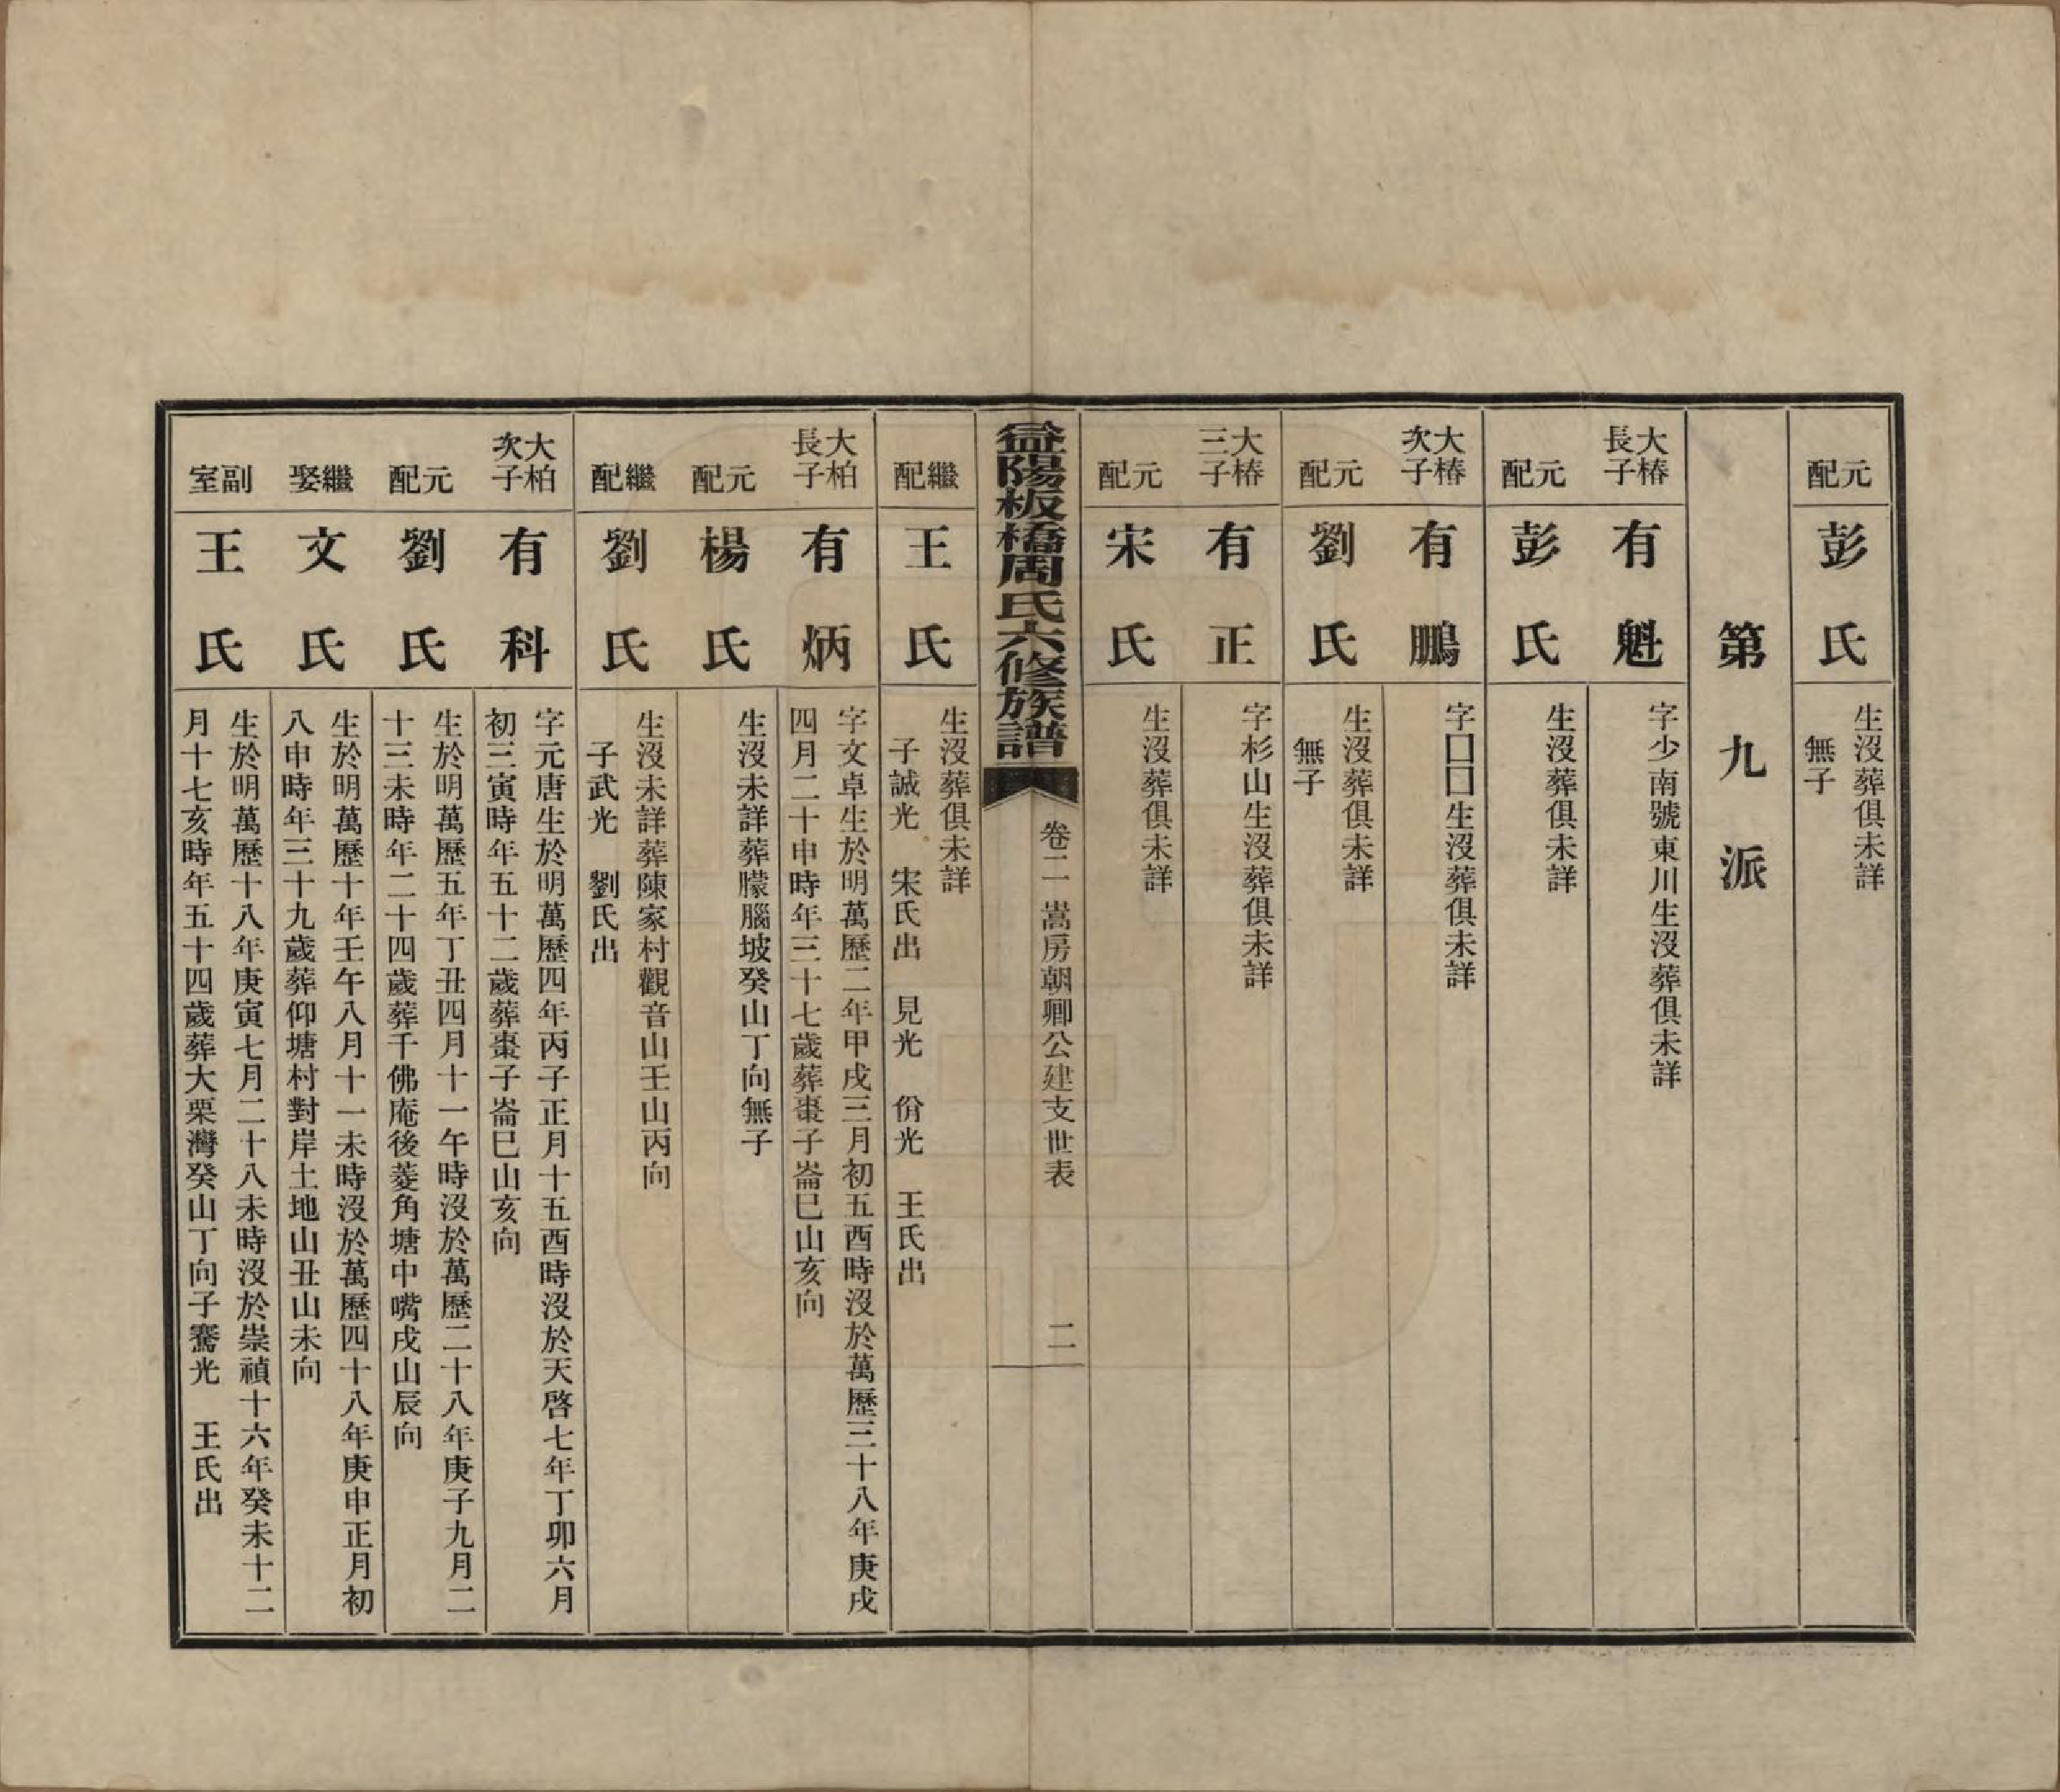 元配
彭氏
生沒葬俱未詳
無子
第九派
大椿長子
有魁
字少南號東川生沒葬俱未詳
元配
彭氏
生沒葬俱未詳
大椿次子
有鵬
字囗囗生沒葬俱未詳
元配
劉氏
生沒葬俱未詳
無子
大椿三子
有正
字杉山生沒葬俱未詳
元配
宋氏
生沒葬俱未詳
益陽板橋周氏六修族譜
卷二 嵩房朝卿公建支世表 二
繼配
王氏
生沒葬俱未詳
子誠光 宋氏出 見光 佾光 王氏出
大柏長子
有炳
字文卓生於明萬歷二年甲戌三月初五酉時沒於萬歷三十八年庚戌
四月二十申時年三十七歲葬棗子崙巳山亥向
元配
楊氏
生沒未詳葬朦腦坡癸山丁向無子
繼配
劉氏
生沒未詳葬陳家村觀音山壬山丙向
子武光 劉氏出
大柏次子
有科
字元唐生於明萬歷四年丙子正月十五酉時沒於天啓七年丁卯六月
初三寅時年五十二歲葬棗子崙巳山亥向
元配
劉氏
生於明萬歷五年丁丑四月十一午時沒於萬歷二十八年庚子九月二
十三未時年二十四歲葬千佛庵後菱角塘中嘴戌山辰向
繼娶
文氏
生於明萬歷十年壬午八月十一未時沒於萬歷四十八年庚申正月初
八申時年三十九歲葬仰塘村對岸土地山丑山未向
副室
王氏
生於明萬歷十八年庚寅七月二十八未時沒於崇禎十六年癸未十二
月十七亥時年五十四歲葬大栗灣癸山丁向子騫光 王氏出